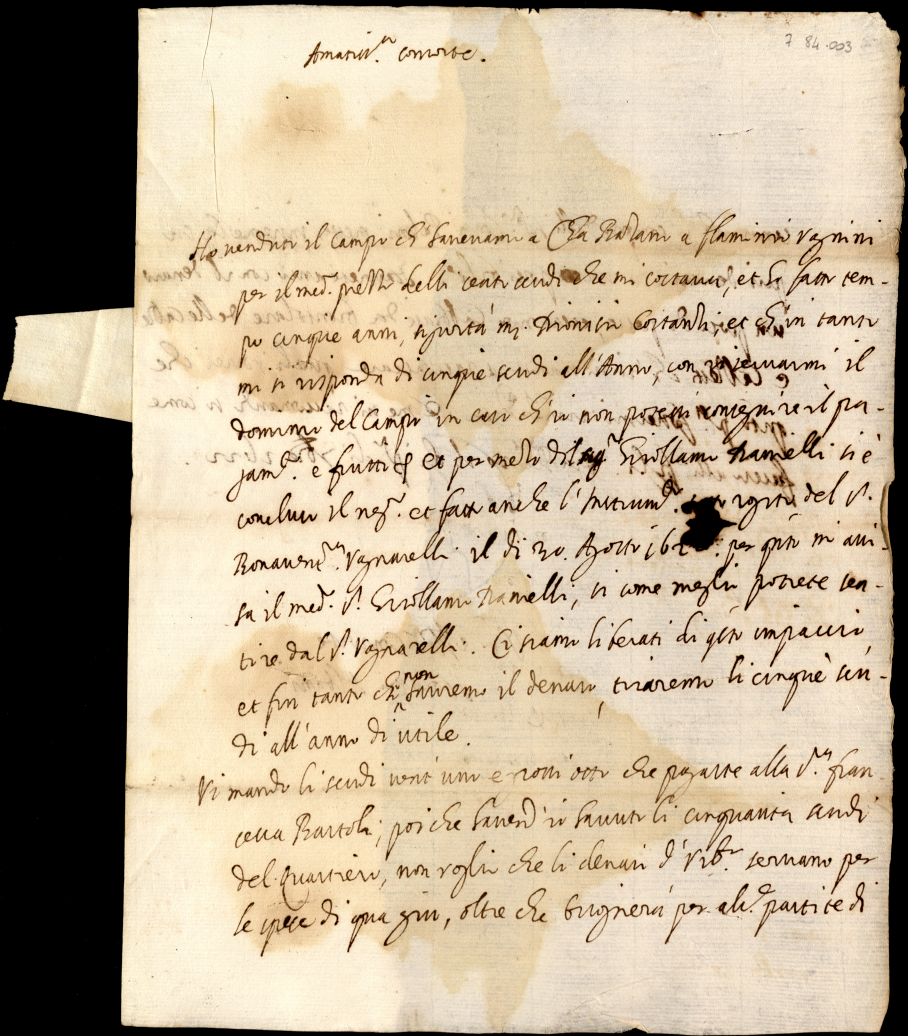 7 84.003
Amatiss.ma consorte.
Ho venduto il Campo ch'havevamo a Cha a flaminio Vagnini
per il med.o prezzo delli cento scudi che mi costava, et ho fatto tem-
po cinque anni, m.r Dionisio et ch'in tanto
mi si risponda di cinque scudi all'Anno, con riservarmi il
dominio del Campo in caso ch'io non potessi conseguire il pa-
gam.to e frutti et per mezo del sig.r Girollamo Ramelli si è
concluso il neg.o et fatto anche l'Instrum.to rogito del s.r
Bonavent.ra Vagnarelli il di 20. Agosto 16 per q.to mi avi-
sa il med.o s.r Girollamo Ramelli, si come meglio potrete sen-
tire dal s.r Vagnarelli. Ci siamo liberati di q.sto impaccio
et fin tanto ch. non havremo il denaro, tiraremo li cinque scu-
di all'anno di utile.
Vi mando li scudi vent'uno e otto che pagaste alla s.ra fran-
cesca Bartoli; poi che havend'io havuto li cinquanta scudi
del Quartiero, non voglio che li denari d'Urb.o servano per
le spese di qua giu, oltre che bisognerà per alc.e partite di